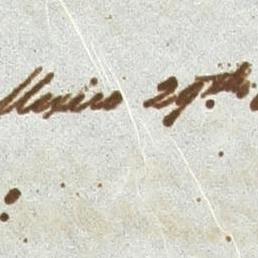 Mexico 29th